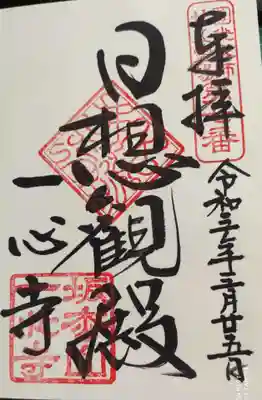 奉拝
令和三年三月廿五日
日想観殿
一心寺